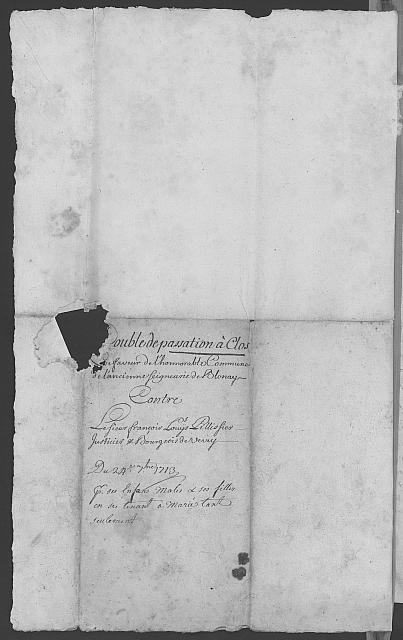 Double de passation à Clos
en faveur de l'honnorable Commune
de l'ancienne Seigneurie de Blonay
Contre
Le Sieur françois Louys Pillissier
Justicier & Bourgeois de Vevey
Du 24e 1713
p. ses Enfans Males & ses filles
en se tenant a Marie tant
seulement